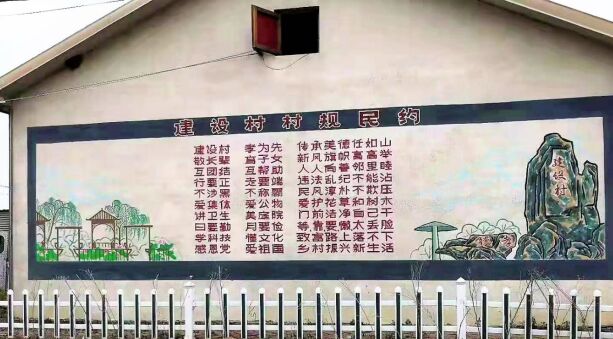 建设村村规民约
建设村 孝为先 传承美德任如山
敬长辈 育子女 新风旗帜高高举
互团结 互帮助 人人向善邻里睦
行要正 走要端 违法乱纪不能沾
不涉黑 不称霸 民风淳朴不欺压
爱集体 爱公物 爱护花草和树木
讲卫生 美庭院 门前洁净自己干
日要勤 月要俭 等靠要懒太丢脸
学科技 懂文化 致富路上落不下
感恩党 爱祖国 乡村振兴新生活
建设村